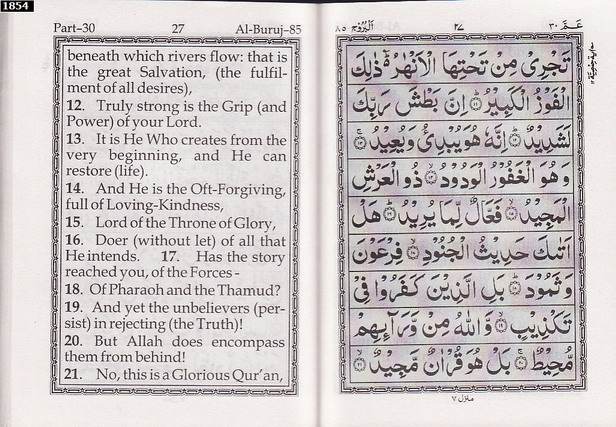 1854
Part-30 27 Al-Buruj-85
beneath which rivers flow: that is
the great Salvation, (the fulfil-
ment of all desires),
12. Truly strong is the Grip (and
Power) of your Lord.
13. It is He Who creates from the
very beginning, and He can
restore (life).
14. And He is the Oft-Forgiving,
full of Loving-Kindness,
15. Lord of the Throne of Glory,
16. Doer (without let) of all that
He intends. 17. Has the story
reached you, of the Forces -
18. Of Pharaoh and the Thamud?
19. And yet the unbelievers (per-
sist) in rejecting (the Truth)!
20. But Allah does encompass
them from behind!
21. No, this is a Glorious Qur'an,
البُرُوج ٨٥ ٢٧ عَمَّ ٣٠
تَجْرِىْ مِنْ تَحْتِهَا الْاَنْهٰرُ ذٰلِكَ
الْفَوْزُ الْكَبِيْرُ ۝١١ اِنَّ بَطْشَ رَبِّكَ
لَشَدِيْدٌ ۝١٢ اِنَّهٗ هُوَ يُبْدِئُ وَيُعِيْدُ ۝١٣
وَهُوَ الْغَفُوْرُ الْوَدُوْدُ ۝١٤ ذُو الْعَرْشِ
الْمَجِيْدُ ۝١٥ فَعَّالٌ لِّمَا يُرِيْدُ ۝١٦ هَلْ
اَتٰىكَ حَدِيْثُ الْجُنُوْدِ ۝١٧ فِرْعَوْنَ
وَثَمُوْدَ ۝١٨ بَلِ الَّذِيْنَ كَفَرُوْا فِىْ
تَكْذِيْبٍ ۝١٩ وَّاللّٰهُ مِنْ وَّرَآئِهِمْ
مُّحِيْطٌ ۝٢٠ بَلْ هُوَ قُرْاٰنٌ مَّجِيْدٌ ۝٢١
منزل ٧